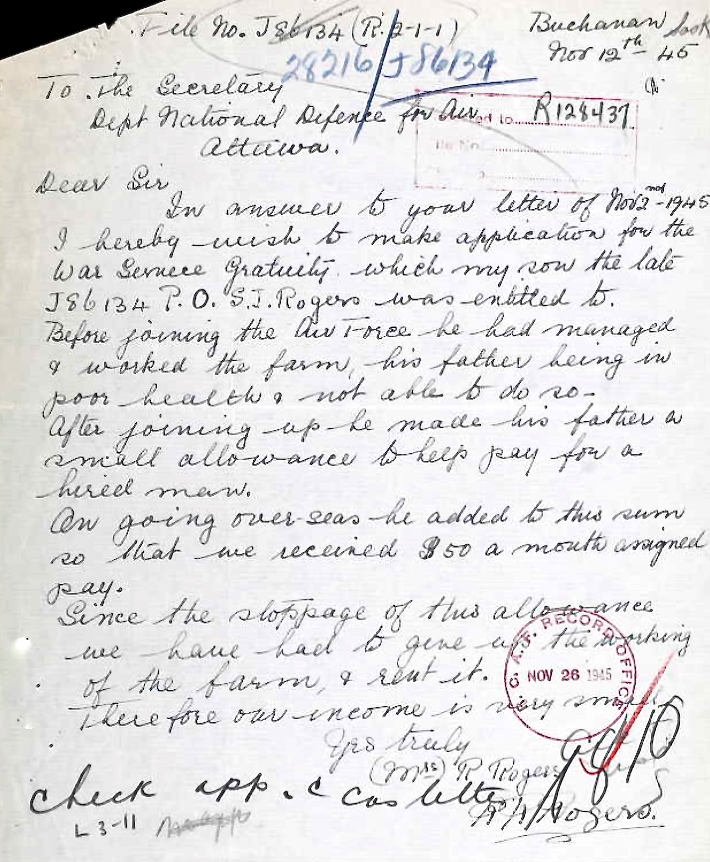 File No. J86134 (R.2-1-1)
Buchanan Sask
Nov 12th - 45
28216/J86134
To The Secretary
Dept National Defence for Air
ed to R128437
Attawa.
Dear Sir
In answer to your letter of Nov 2nd-1945
I hereby wish to make application for the
War Service Gratuity which my son the late
J86134 P.O. S.J. Rogers was entitled to.
Before joining the Air Force he had managed
& worked the farm, his father being in
poor health & not able to do so-
After joining up he made his father a
small allowance to help pay for a
hired man.
On going over-seas he added to this sum
so that we received $50 a month assigned
pay.
Since the stoppage of this allowance
we have had to give up the working
of the farm, & rent it.
Therefore our income is very small
R.C.A.F. RECORD OFFICE
NOV 26 1945
Yrs truly
(Mrs) R Rogers
Rogers.
check app. & cas lette
L 3-11